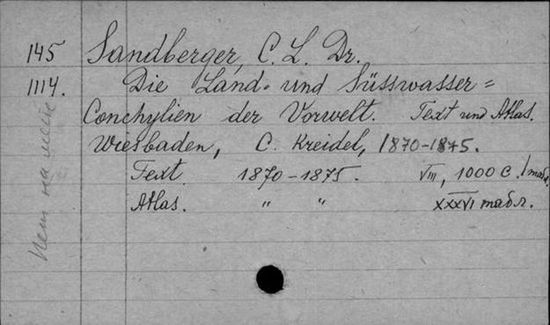 145 Sandberger, C. L. Dr.
1114. Die Land- und Süsswasser=
Conchylien der Vorwelt. Text und Atlas.
Wiesbaden, C. Kreidel, 1870-1875.
Text 1870-1875. VIII, 1000 с. / табл.
Atlas. " " XXXVI табл.
Нет на месте